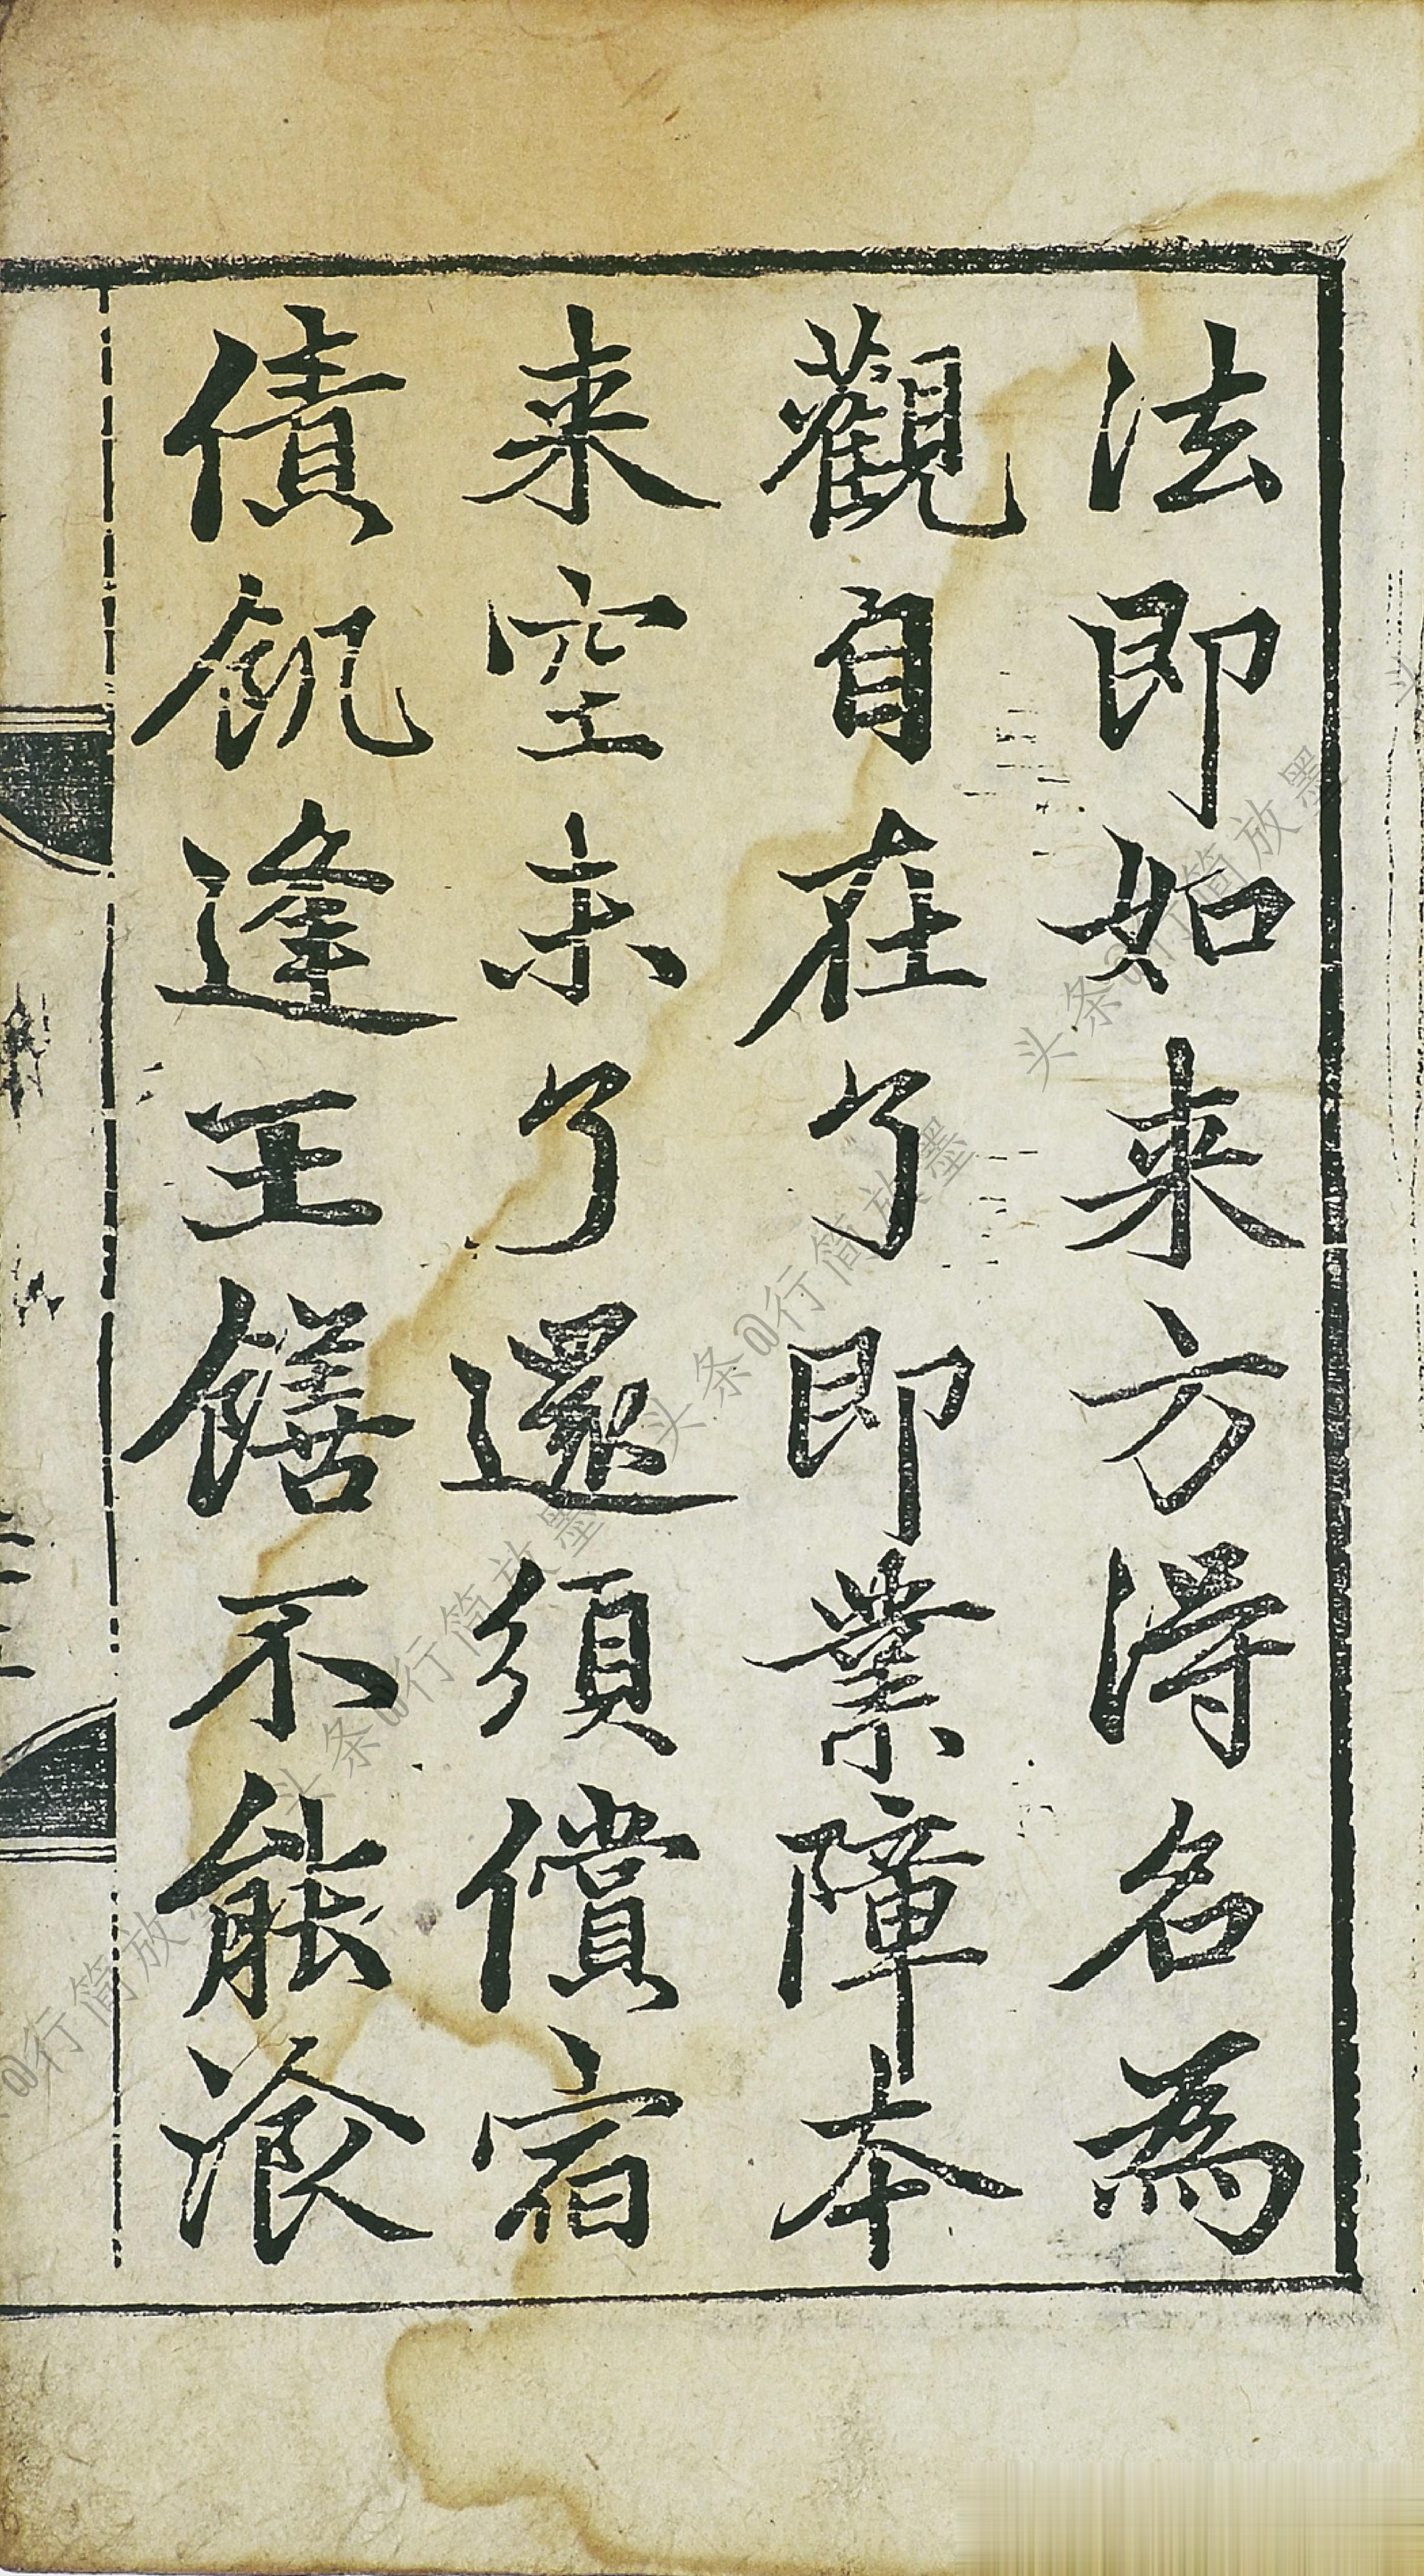 法即如来方得名為
觀自在了即業障本
来空未了還須償宿
債飢逢王饍不能飡
头条@行简放墨
头条@行简放墨
头条@行简放墨
@行简放墨